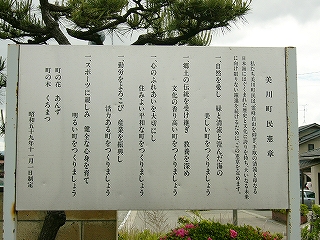 美川町民憲章
一、自然を愛し 緑と清流と澄んだ海の
美しい町をつくりましょう
一、郷土の伝統を受け継ぎ 教養を深め
文化の香り高い町をつくりましょう
一、心のふれあいを大切にし
住みよい平和な町をつくりましょう
一、勤労をよろこび 産業を振興し
活力ある町をつくりましょう
一、スポーツに親しみ 健全な心身を育て
明るい町をつくりましょう
町の花 あんず
町の木 くろまつ
昭和五十九年十一月一日制定